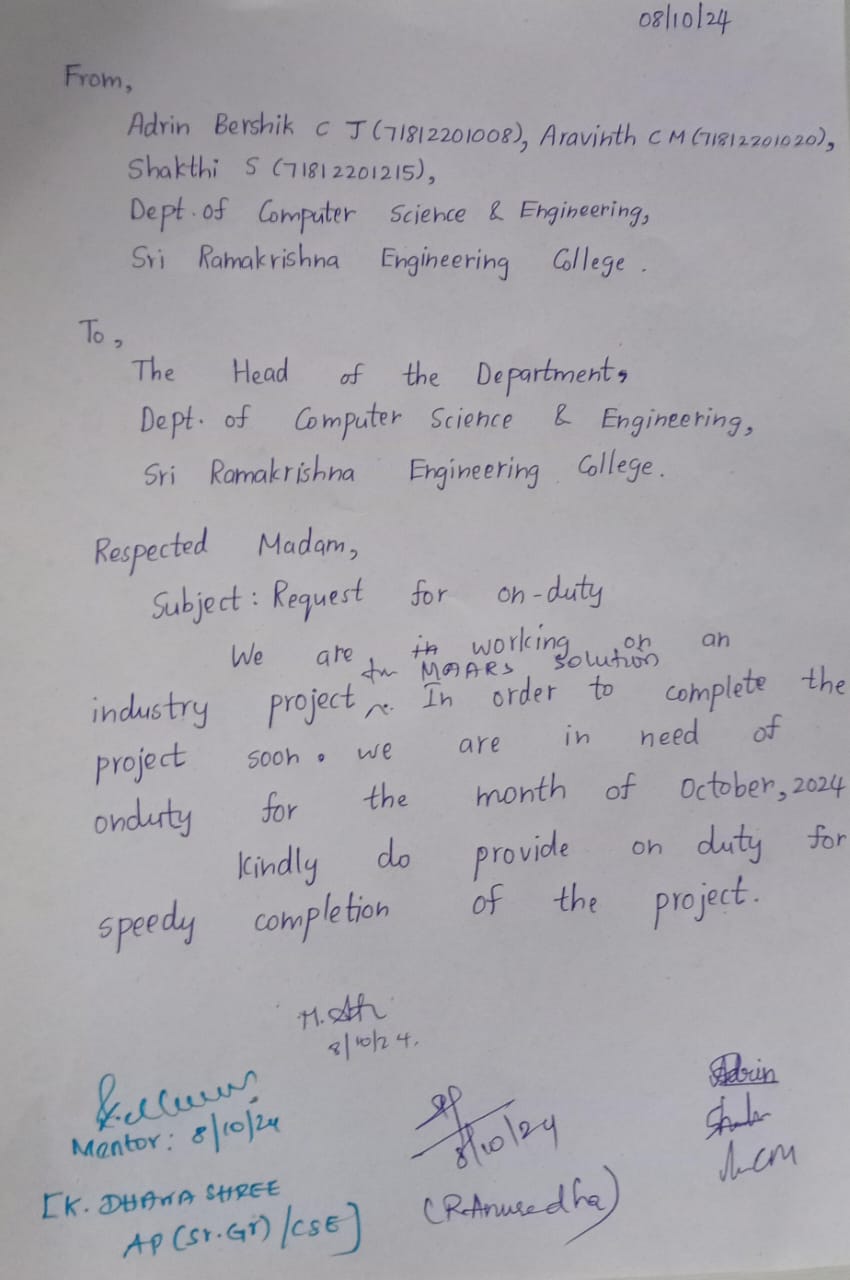 08/10/24
From,
Adrin Bershik C J (71812201008), Aravinth C M (71812201020),
Shakthi S (71812201215),
Dept. of Computer Science & Engineering,
Sri Ramakrishna Engineering College.
To,
The Head of the Department,
Dept. of Computer Science & Engineering,
Sri Ramakrishna Engineering College.
Respected Madam,
Subject: Request for on-duty
We are in working on an
for MAARS solution
industry project. In order to complete the
project soon. we are in need of
onduty for the month of October, 2024
kindly do provide on duty for
speedy completion of the project.
8/10/24.
Adrin
Mentor: 8/10/24
8/10/24
CM
[K. DHANA SHREE
(R.Anusedha)
AP (Sr.Gr) /CSE]